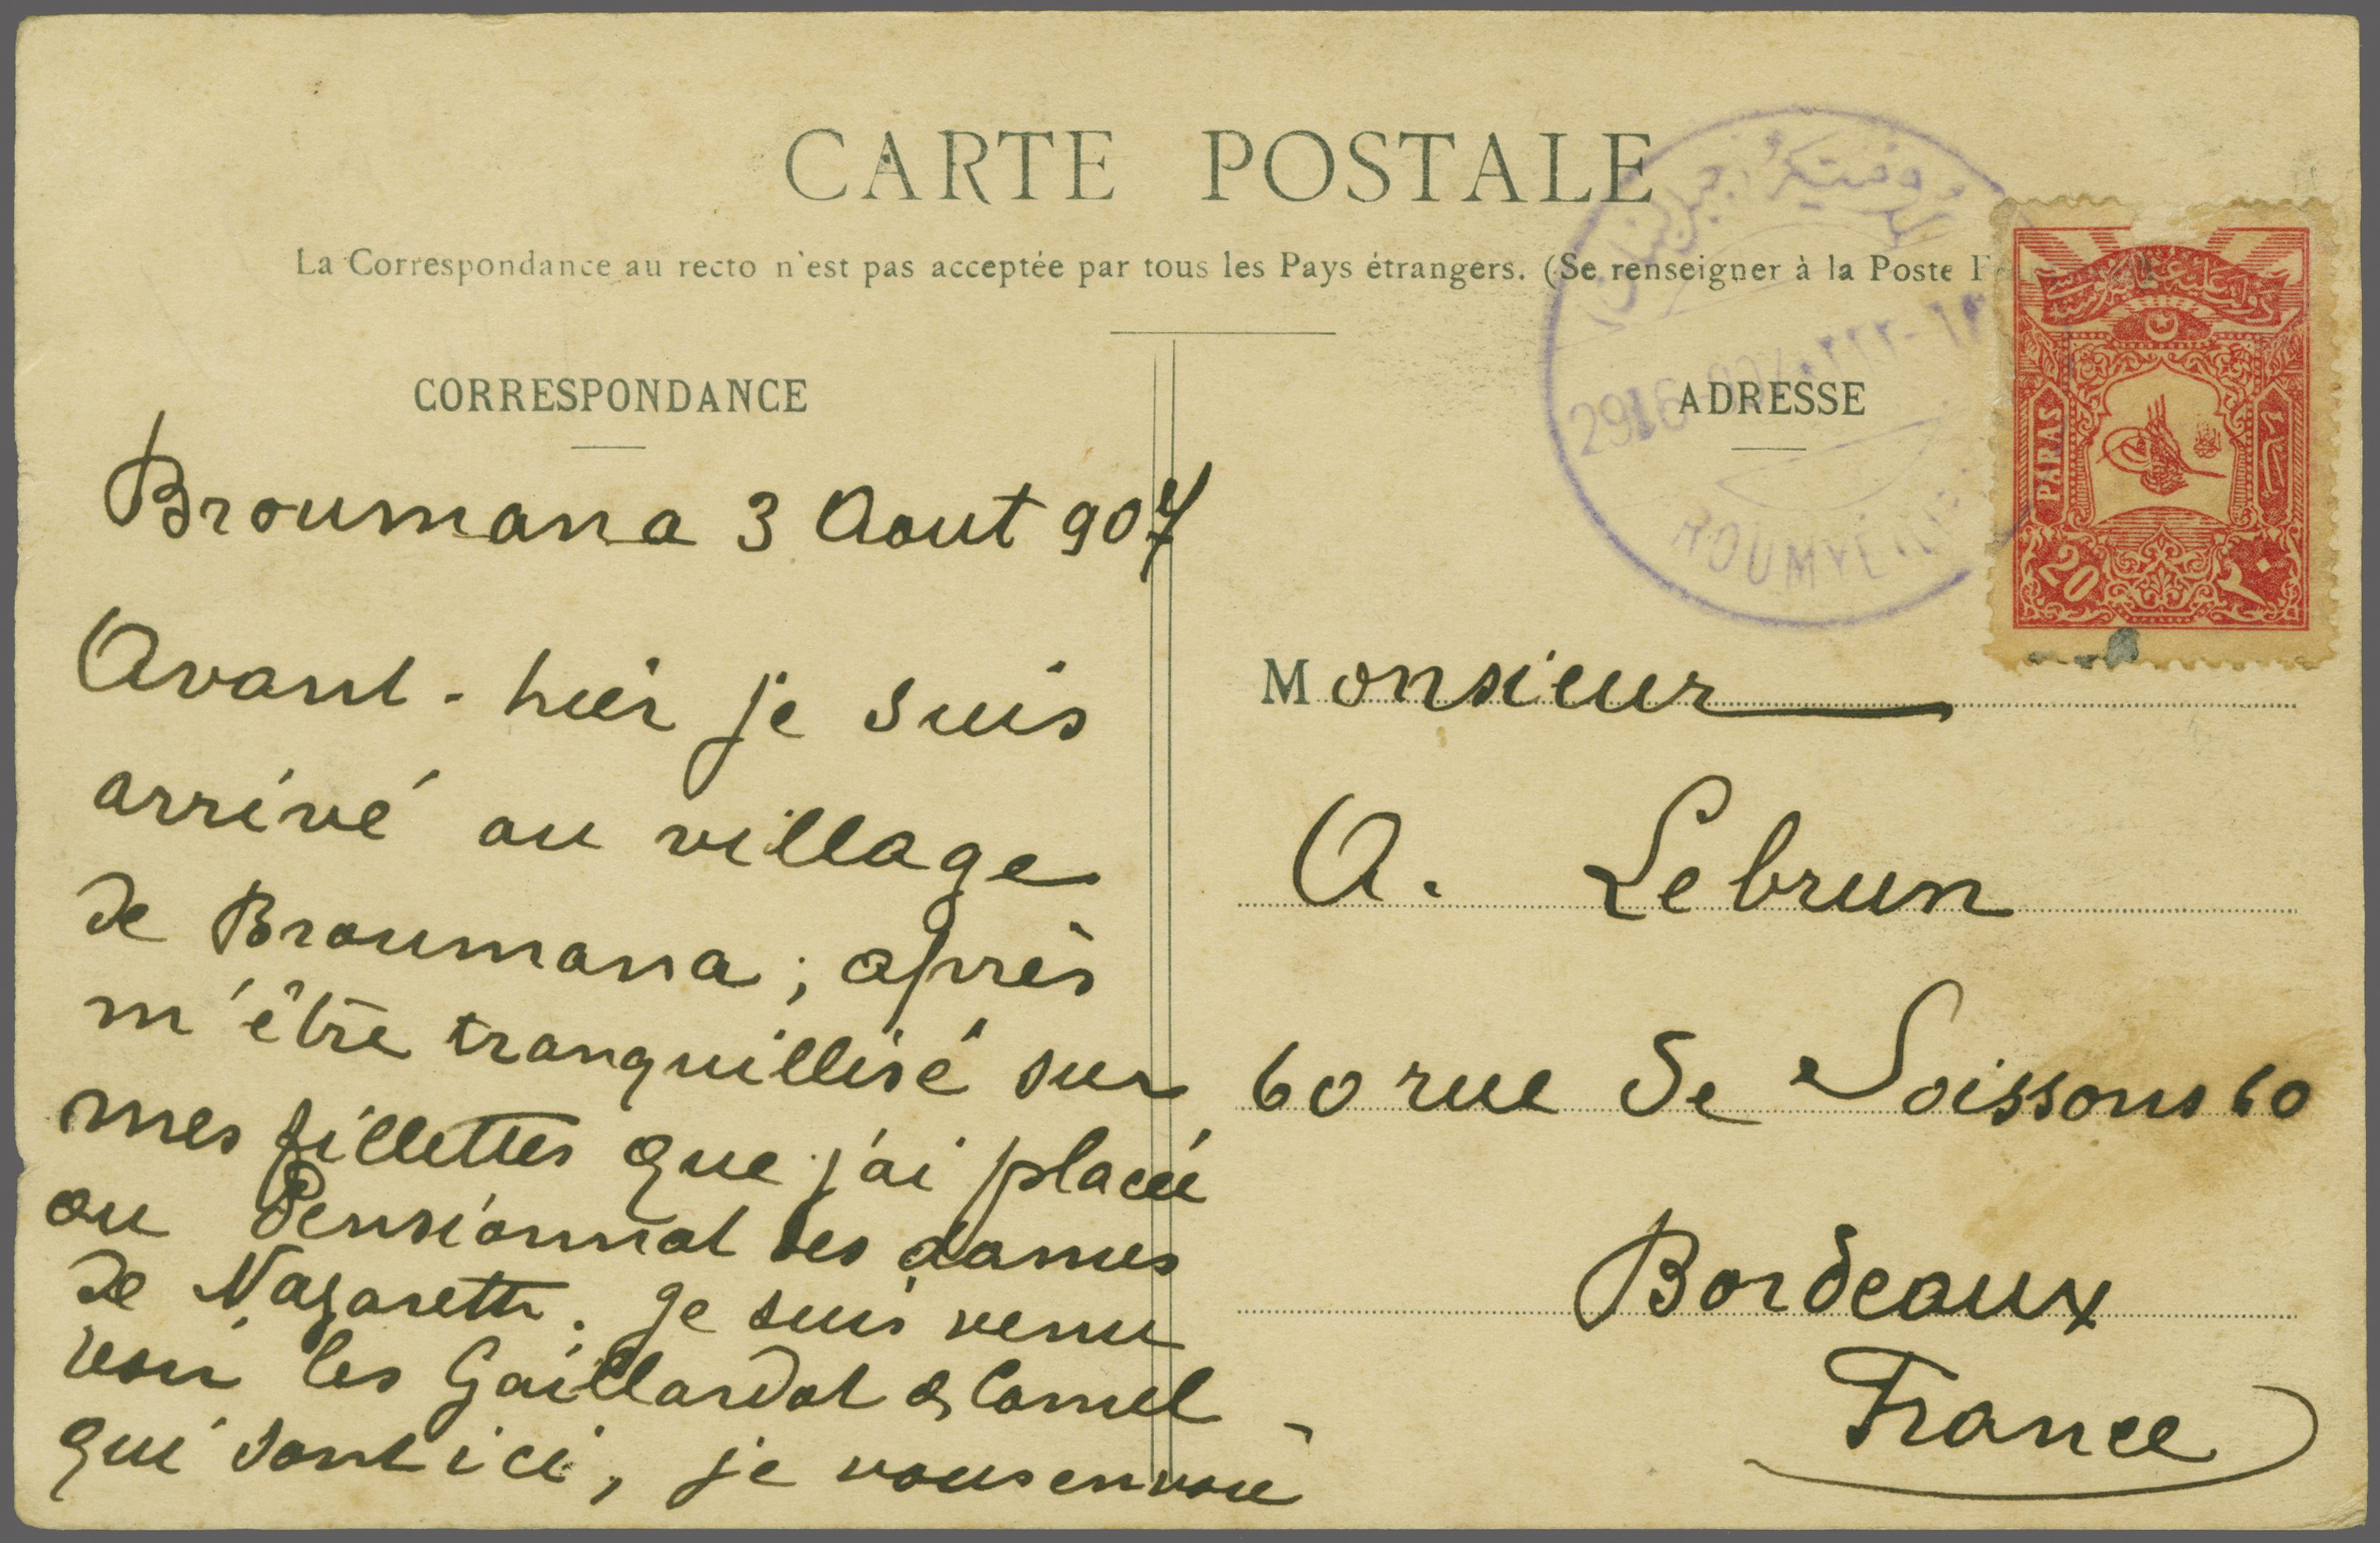 CARTE POSTALE
La Correspondance au recto n'est pas acceptée par tous les Pays étrangers. (Se renseigner à la Poste
CORRESPONDANCE
Broumana 3 Aout 907
Avant-hier je suis
arrivé au village
de Broumana ; après
m'être tranquillisé sur
mes fillettes que j'ai placé
au Pensionnat des dames
de Nazareth. Je suis venu
voir les Gaillardot & Camel
qui sont ici, je vous envoie
ADRESSE
Monsieur
A. Lebrun
60 rue de Soissons 60
Bordeaux
France
PARAS
20
٢٠